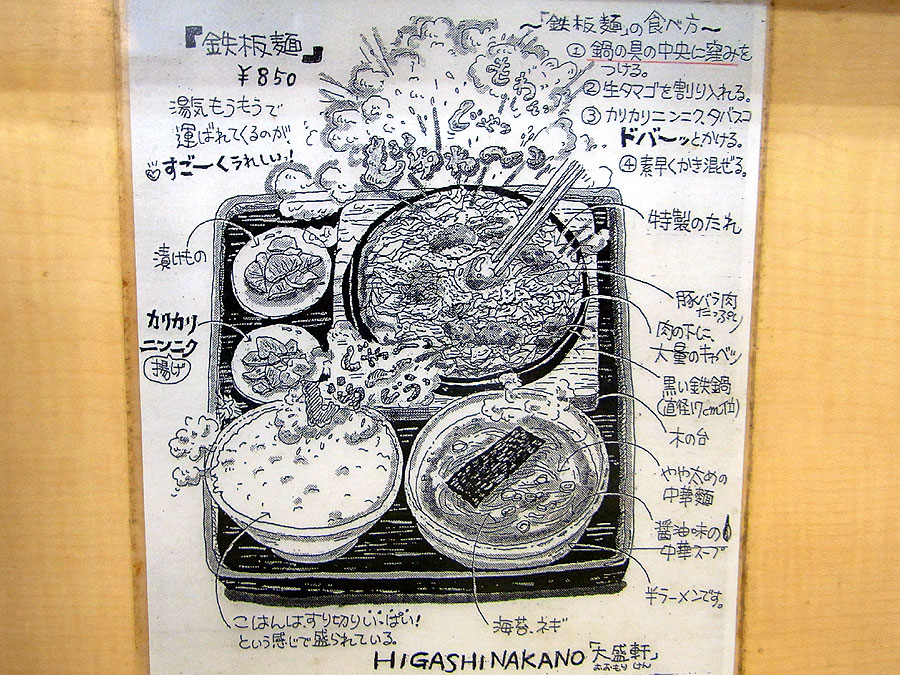 『鉄板麺』
¥850
湯気もうもうで
運ばれてくるのが、
♡すご〜くうれしい!
〜「鉄板麺」の食べ方〜
① 鍋の具の中央に窪みを
つける。
② 生タマゴを割り入れる。
③ カリカリニンニク、タバスコ
ドバーッとかける。
④ 素早くかき混ぜる。
もわ
じゃ
漬けもの
カリカリ
ニンニク
揚げ
特製のたれ
豚バラ肉
たっぷり
肉の下に、
大量のキャベツ
黒い鉄鍋
(直径17cm位)
木の台
やや太めの
中華麺
醤油味の
中華スープ
半ラーメンです。
海苔、ネギ
ごはんはすり切りいっぱい!
という感じで盛られている。
HIGASHINAKANO「大盛軒」
おおもりけん